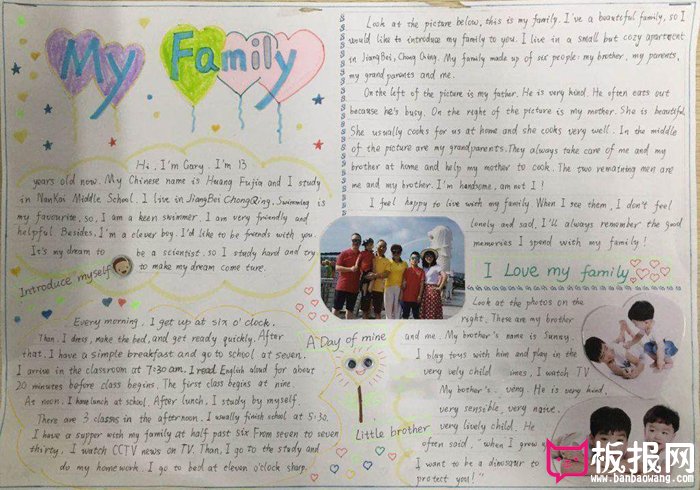 My Family
Hi, I'm Gary. I'm 13
years old now. My Chinese name is Huang Fujia and I study
in NanKai Middle School. I live in JiangBei ChongQing, Swimming is
my favourite, so, I am a keen swimmer. I am very friendly and
helpful. Besides, I'm a clever boy. I'd like to be friends with you.
It's my dream to be a scientist. so I study hard and try
to make my dream come ture.
Introduce myself
Every morning, I get up at six o'clock.
Than, I dress, make the bed, and get ready quickly. After
that, I have a simple breakfast and go to school at seven.
I arrive in the classroom at 7:30 am. I read English aloud for about
20 minutes before class begins. The first class begins at nine.
At noon, I have lunch at school. After lunch, I study by myself.
There are 3 classes in the afternoon. I usually finish school at 5:30.
I have a supper with my family at half past six From seven to seven
thirty, I watch CCTV news on TV. Than, I go to the study and
do my homework. I go to bed at eleven o'clock sharp.
A Day of mine
Look at the picture below, this is my family. I've a beautiful family, so I
would like to introduce my family to you. I live in a small but cozy apartment
in JiangBei, Chong Qing. My family made up of six people: my brother, my parents,
my grandparents and me.
On the left of the picture is my father. He is very kind. He often eats out
because he's busy. On the right of the picture is my mother. She is beautiful.
She usually cooks for us at home and she cooks very well. In the middle
of the picture are my grandparents. They always take care of me and my
brother at home and help my mother to cook. The two remaining men are
me and my brother. I'm handsome, am not I!
I feel happy to live with my family. When I see them, I don't feel
lonely and sad. I'll always remember the good
memories I spend with my family!
I Love my family
Look at the photos on the
right. These are my brother
and me. My brother's name is
I play toys with him and play in the
very
I watch TV
He is very kind,
very sensible, very naive,
very lively child. He
often said, "when I grew
I want to be a dinosaur to
protect you!"
Little brother
板报网
www.banbaowang.com